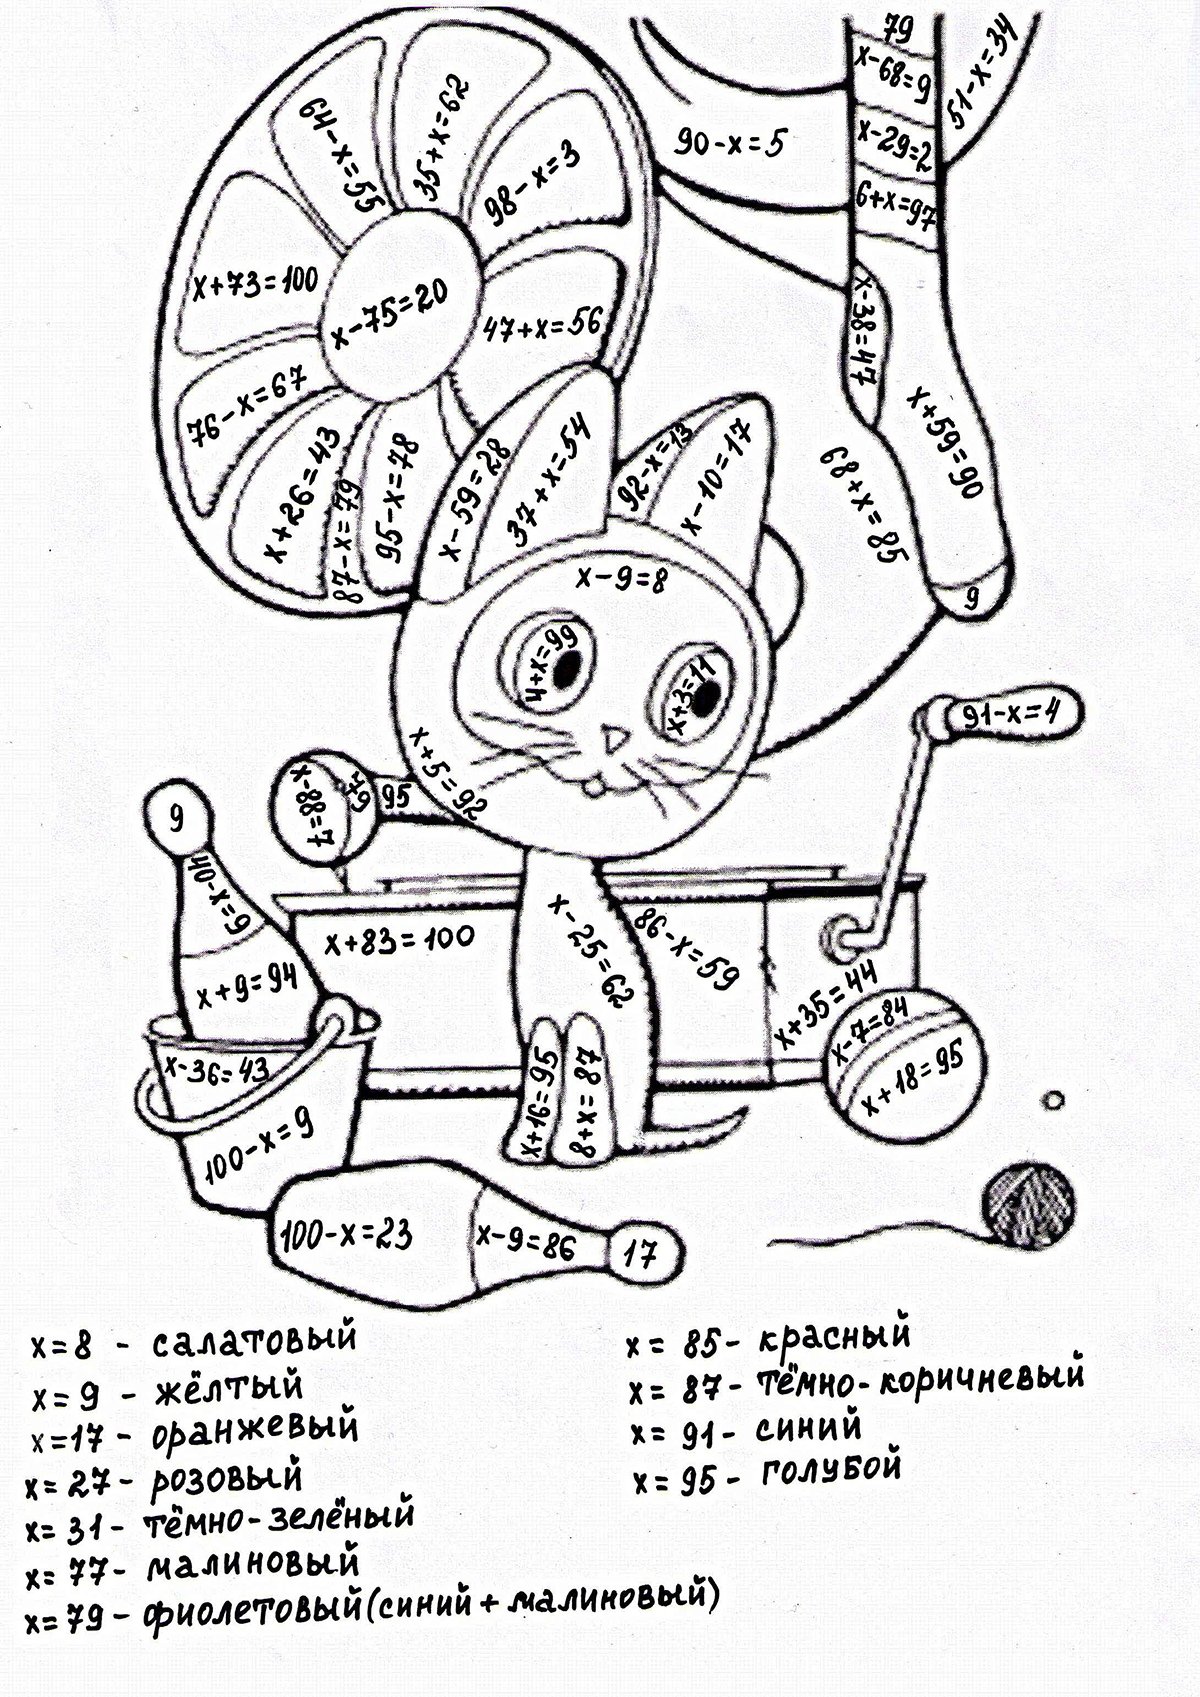 79
x-68=9
51-x=34
64-x=55
35+x=62
98-x=3
90-x=5
x-29=2
6+x=97
x+73=100
x-75=20
47+x=56
x-38=47
76-x=67
x+26=43
87-x=79
95-x=78
x-59=28
37+x=54
92-x=13
x-10=17
68+x=85
x+59=90
x-9=8
9
4+x=99
x+3=11
91-x=4
x+5=92
x-88=7
79
95
9
40-x=9
x+83=100
x-25=62
86-x=59
x+9=94
x+35=44
x-7=84
x+18=95
x-36=43
x+16=95
8+x=87
100-x=9
100-x=23
x-9=86
17
x=8 - салатовый
x=9 - жёлтый
x=17- оранжевый
x=27- розовый
x=31- тёмно-зелёный
x=77- малиновый
x=79- фиолетовый(синий+малиновый)
x= 85- красный
x= 87- тёмно-коричневый
x= 91- синий
x= 95- голубой